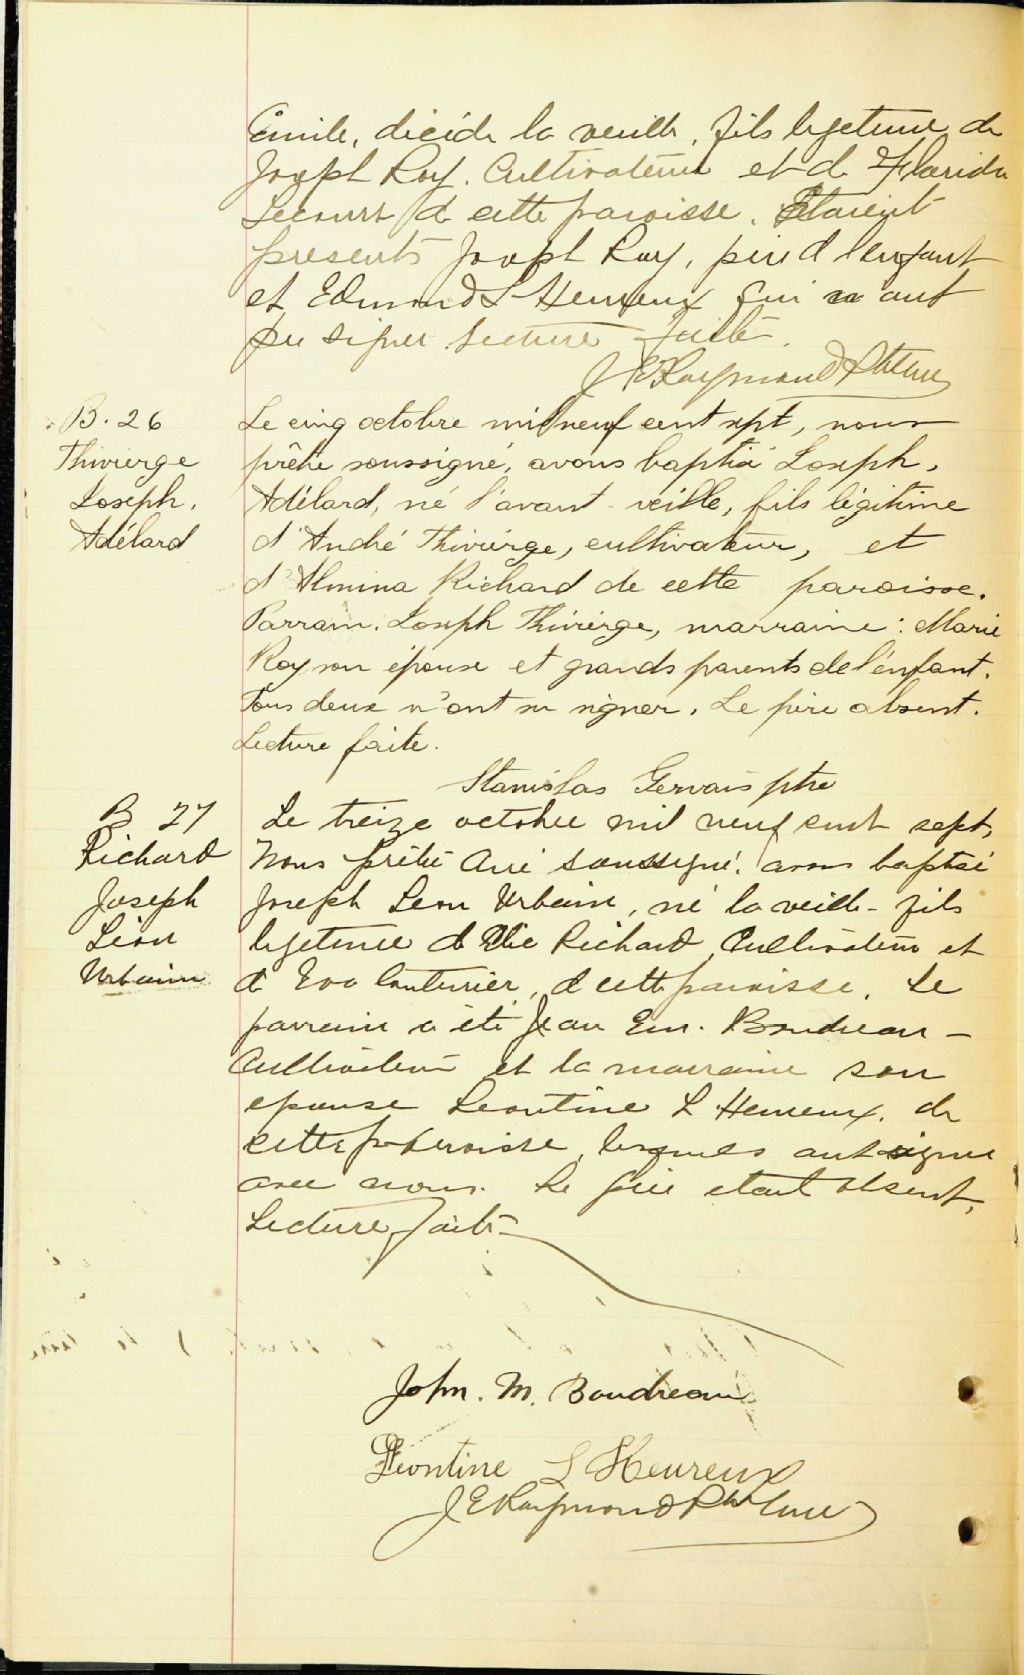 Emile, décédé la veille, fils legetime de
Joseph Roy. Cultivateur et d Florida
d cette paroisse. Etaient
presents Joseph Roy, père d l'enfant
et Edmond L Heureux qui n ont
pu signer Lecture faite.
J E Raymond Ptre cure
B. 26
Thivierge
Joseph,
Adélard
Le cinq octobre mil neuf cent sept, nous
prêtre soussigné, avons baptisé Joseph,
Adélard, né l'avant-veille, fils légitime
d'André Thivierge, cultivateur, et
d'Almina Richard de cette paroisse.
Parrain: Joseph Thivierge, marraine: Marie
Roy son épouse et grands parents de l'enfant.
Tous deux n'ont su signer. Le père absent.
Lecture faite.
Stanislas Gervais ptre
B 27
Richard
Joseph
Léon
Urbain
Le treize octobre mil neuf cent sept,
Nous prêtre curé soussigné, avons baptisé
Joseph Leon Urbain, né la veille - fils
legetime d Richard, Cultivateur et
d Eva Couturier, d cette paroisse. Le
parrain a été Jean Em. Boudreau -
Cultivateur et la marraine son
epouse Leontine L Heureux, de
cette paroisse, lesquels ont signé
avec nous. Le père etant absent,
Lecture faite -
John. M. Boudreau
Leontine L Heureux
J E Raymond Ptre Cure